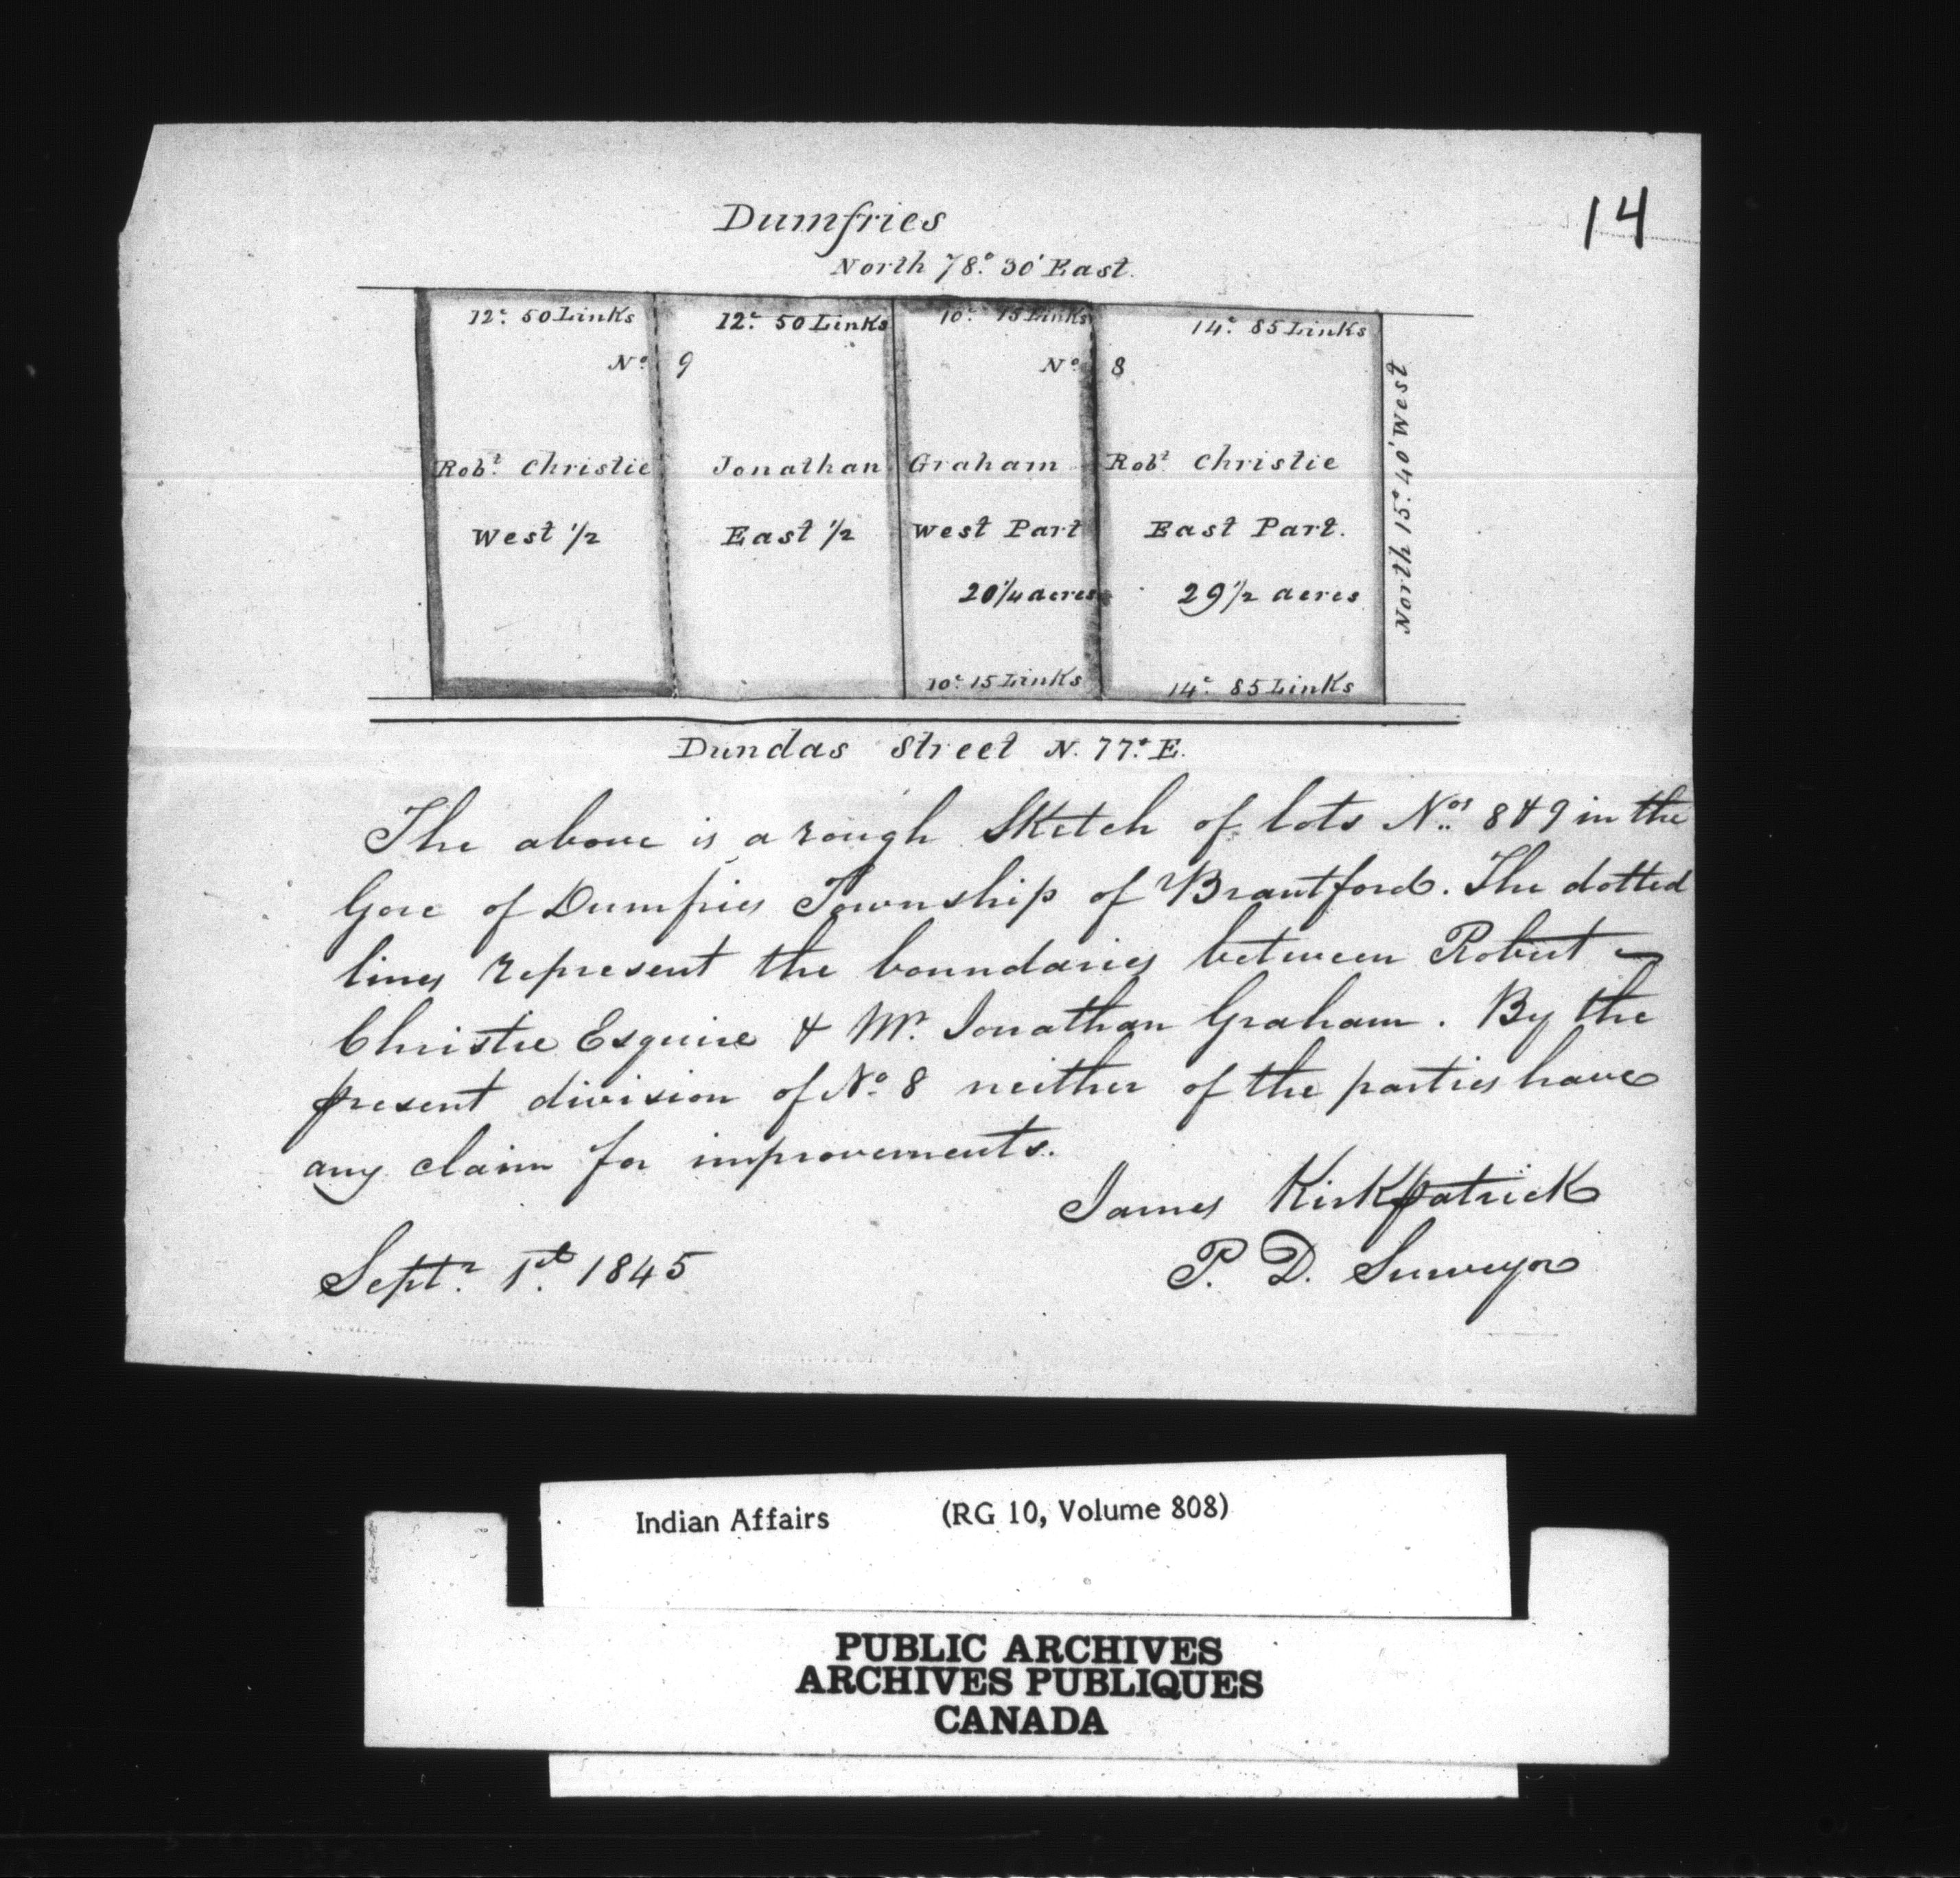 14
Dumfries
North 78°. 30' East.
12c. 50 Links 12c. 50 Links 10c. 15 Links 14c. 85 Links
No. 9 No. 8
Robt. Christie Jonathan Graham Robt. Christie
West 1/2 East 1/2 West Part East Part.
20 1/4 acres 29 1/2 acres
10c. 15 Links 14c. 85 Links
North 15°. 40' West
Dundas Street N. 77°. E.
The above is a rough Sketch of lots Nos. 8 & 9 in the
Gore of Dumfries Township of Brantford. The dotted
lines represent the boundaries between Robert
Christie Esquire & Mr. Jonathan Graham. By the
present division of No. 8 neither of the parties have
any claim for improvements.
James Kirkpatrick
P. D. Surveyor
Septr. 1st. 1845
Indian Affairs (RG 10, Volume 808)
PUBLIC ARCHIVES
ARCHIVES PUBLIQUES
CANADA